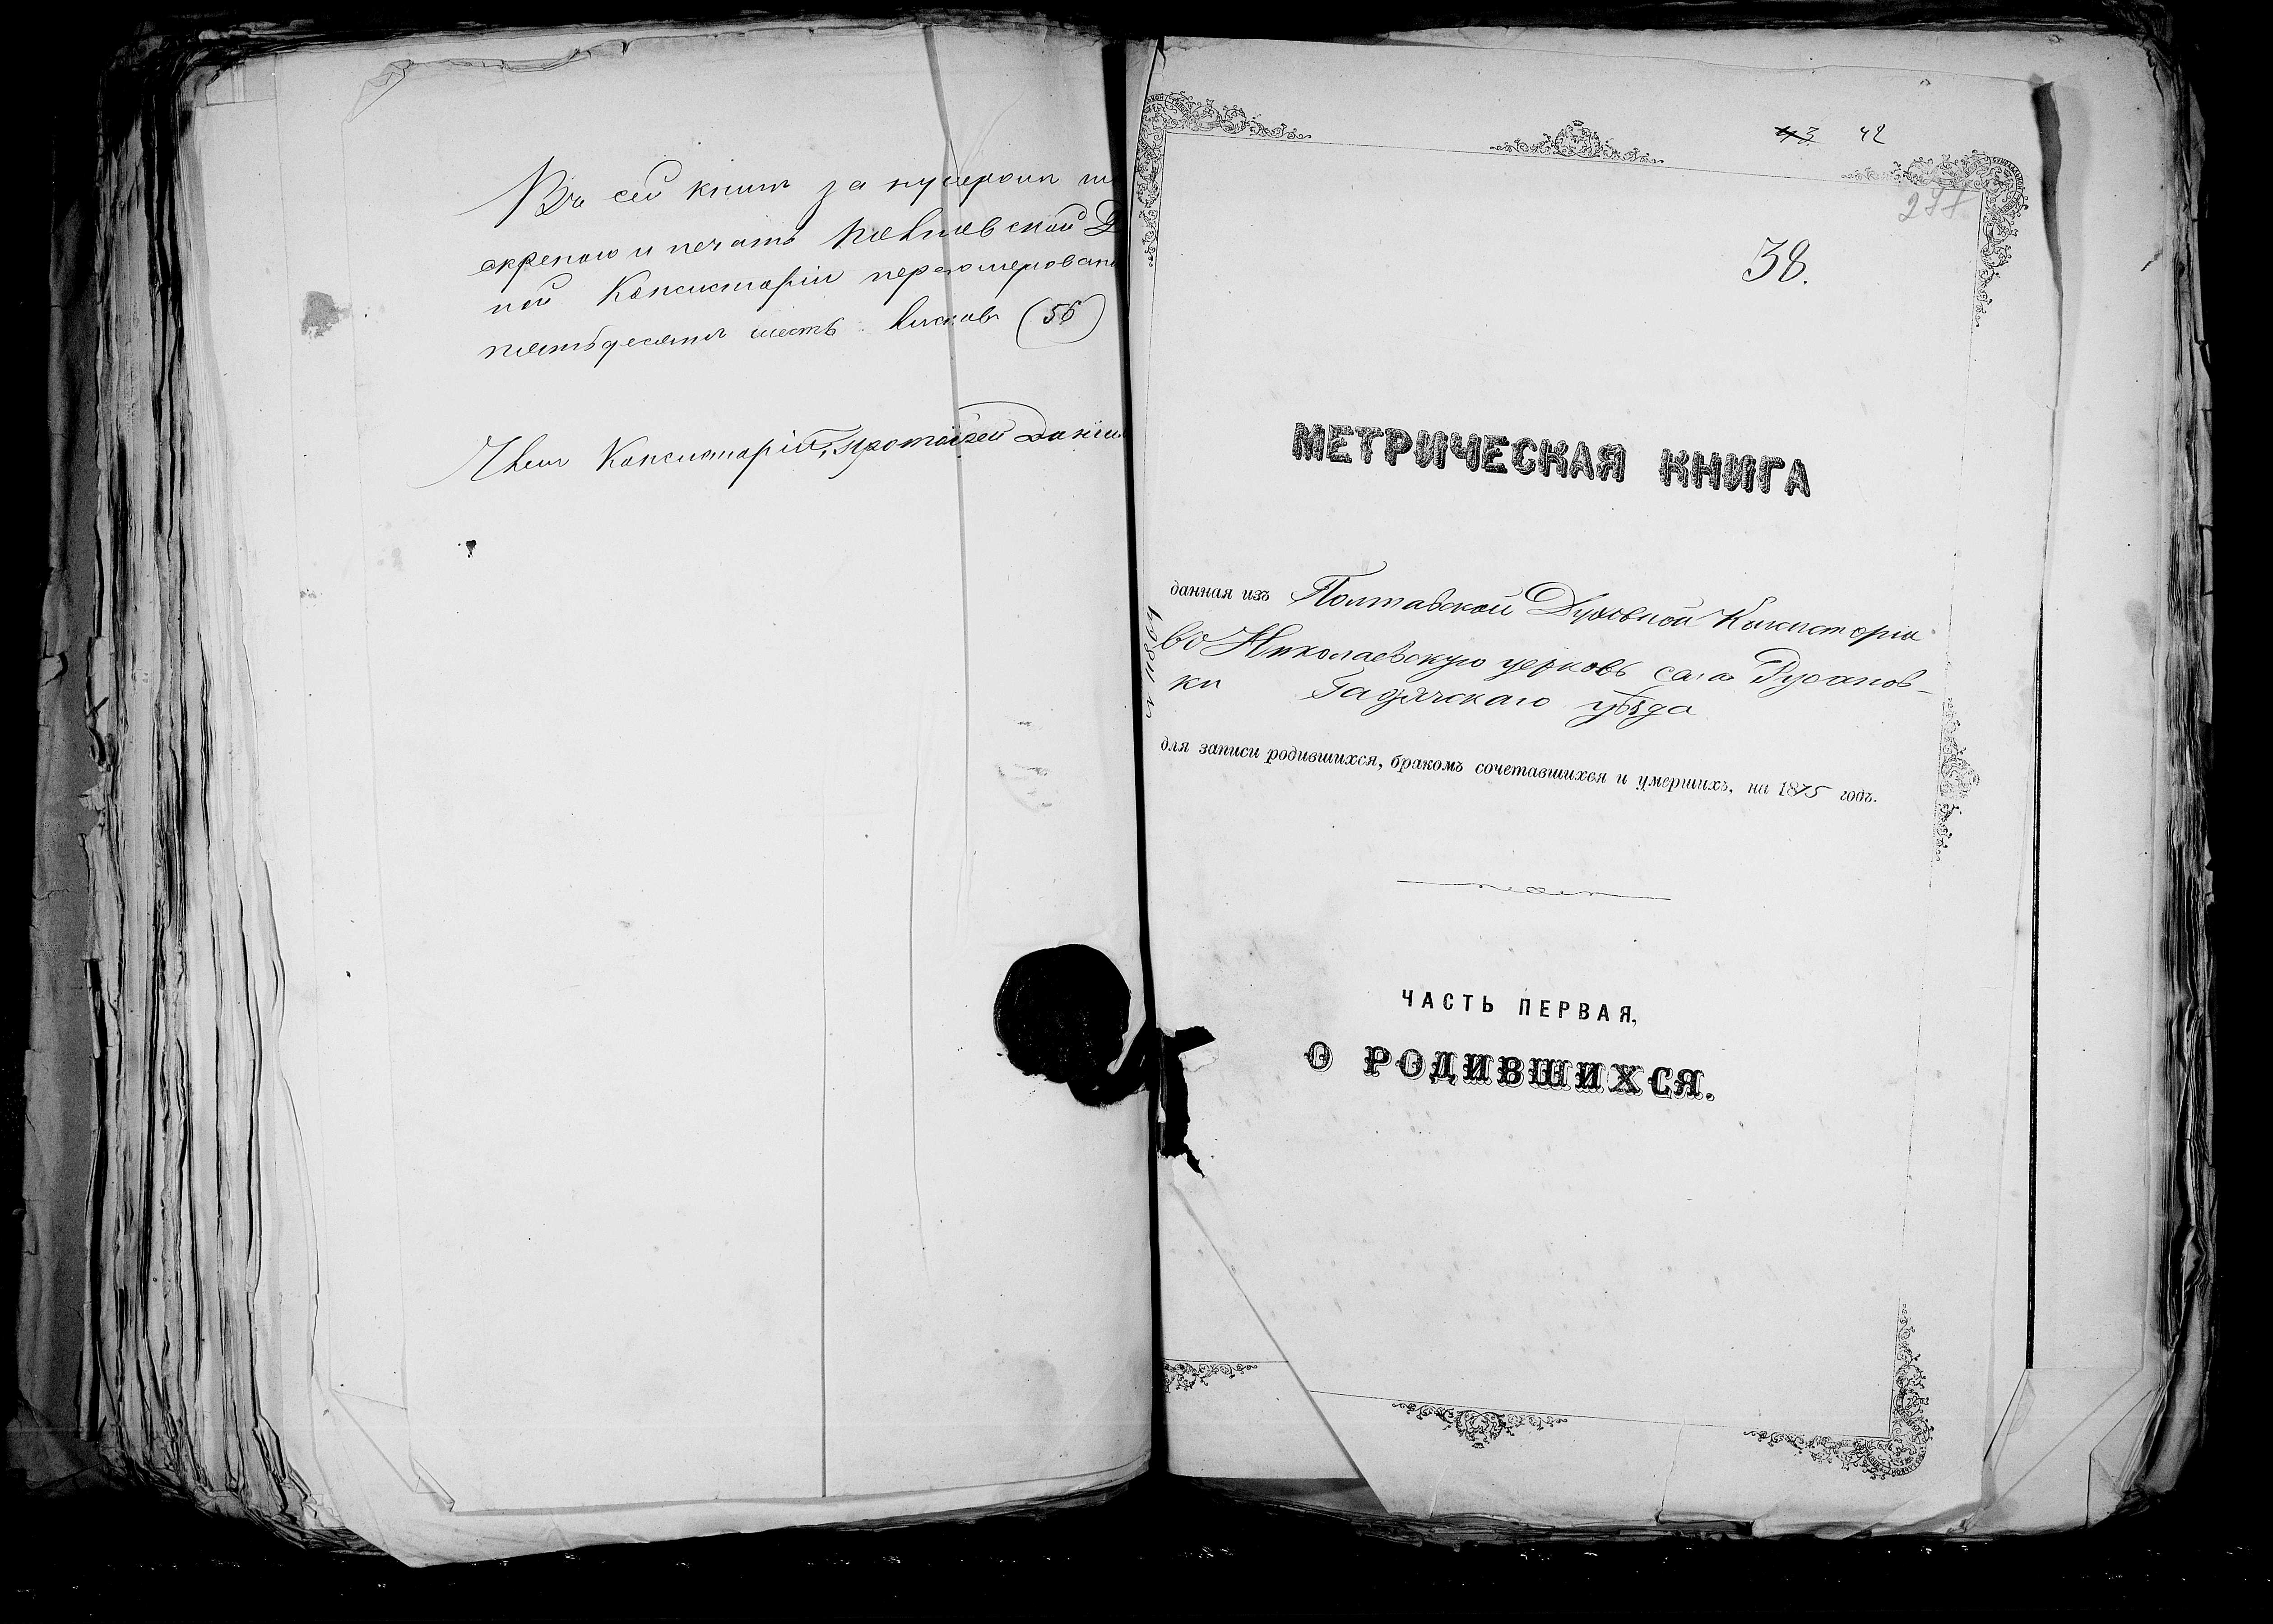 Въ сей книгѣ за нумеромъ
скрепою и печатью Полтавской Д
ной Консисторіи перенумеровано
пятьдесятъ шесть листовъ (56)
Членъ Консисторіи, протоіерей Данiи
43 42
38.
МЕТРИЧЕСКАЯ КНИГА
данная изъ Полтавской Духовной Консисторіи
во Николаевскую церковь села Русанов-
ки Гадячскаго уѣзда
для записи родившихся, бракомъ сочетавшихся и умершихъ, на 1875 годъ.
ЧАСТЬ ПЕРВАЯ,
О РОДИВШИХСЯ.